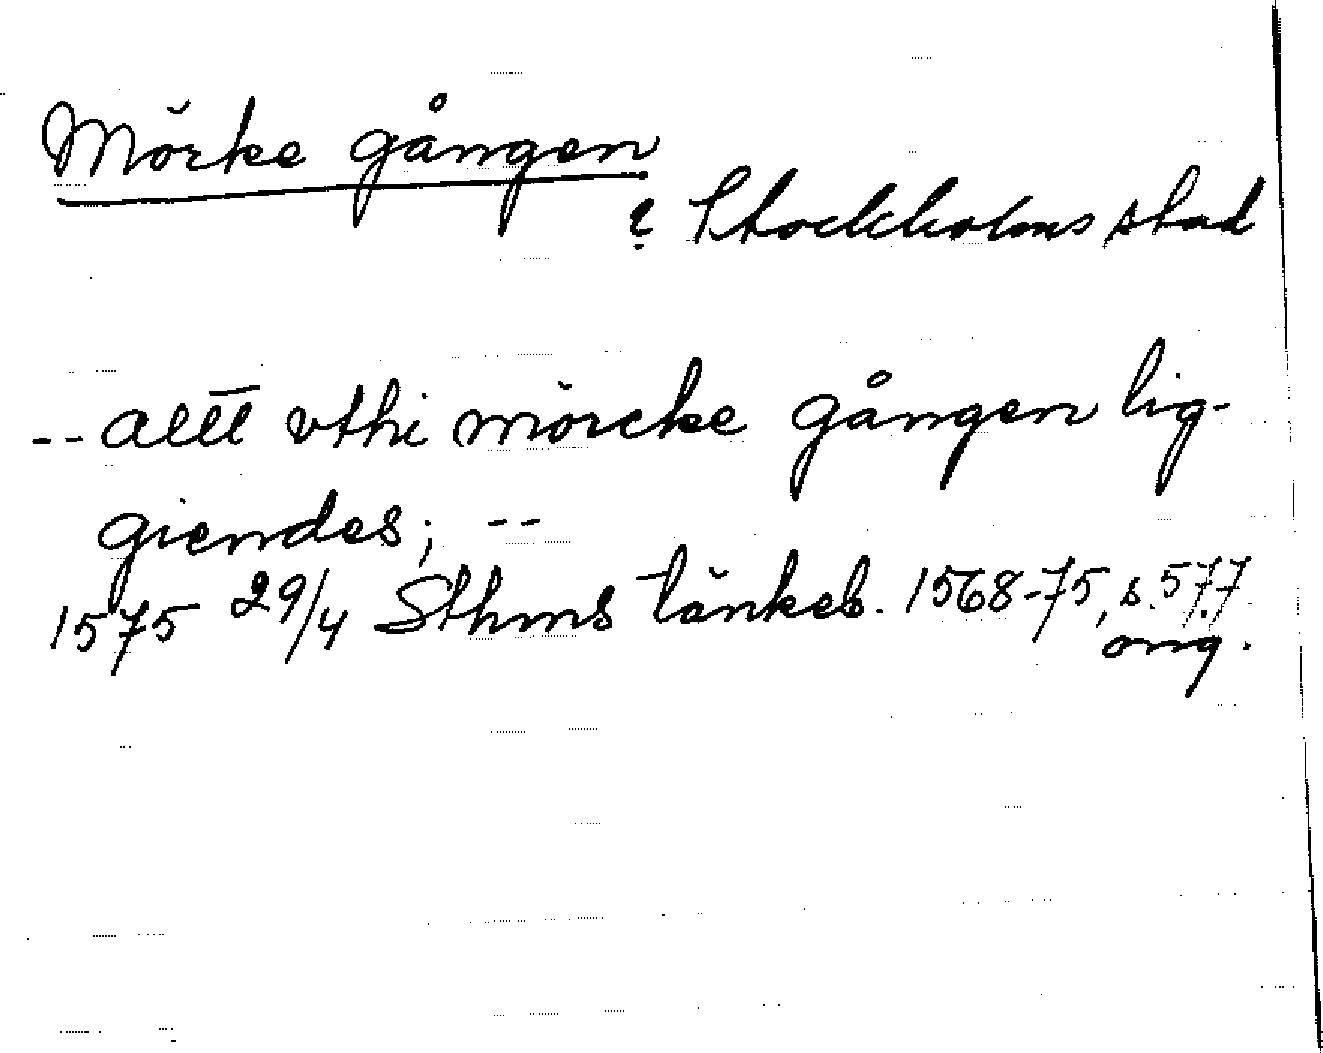 Mörke gången
? Stockholms stad
-- alltt vthi mörcke gången lig-
giendes; --
1575 29/4 Sthms tänkeb. 1568-75, s. 577
orig.